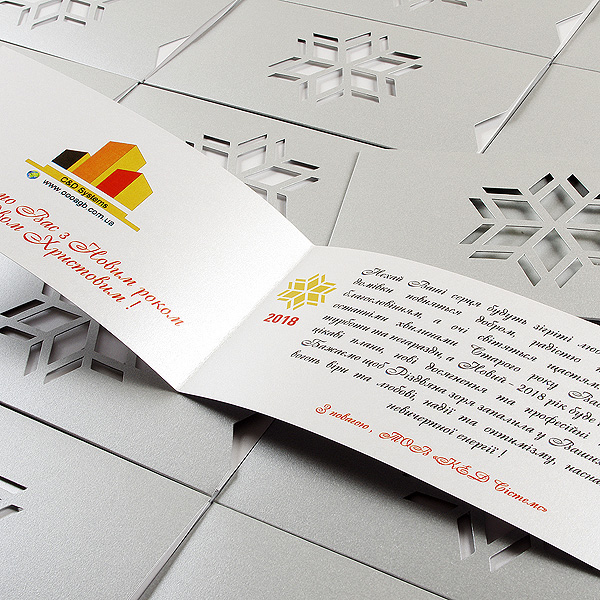 C&D Systems
www.oooagb.com.ua
Вас з Новим роком
Христовим !
2018
Нехай Ваші серця будуть зігріті
домівки повняться добром, радістю
благословінням, а очі світяться щастям
останніми хвилинами Старого року
турботи та негаразди, а Новий - 2018 рік буде
цікаві плани, нові досягнення та професійні
Бажаємо щоб Різдвяна зоря запалила у Ваших
вогонь віри та любові, надії та оптимізму,
невичерпної енергії !
З повагою, ТОВ «К.Е.Д Сістемс»